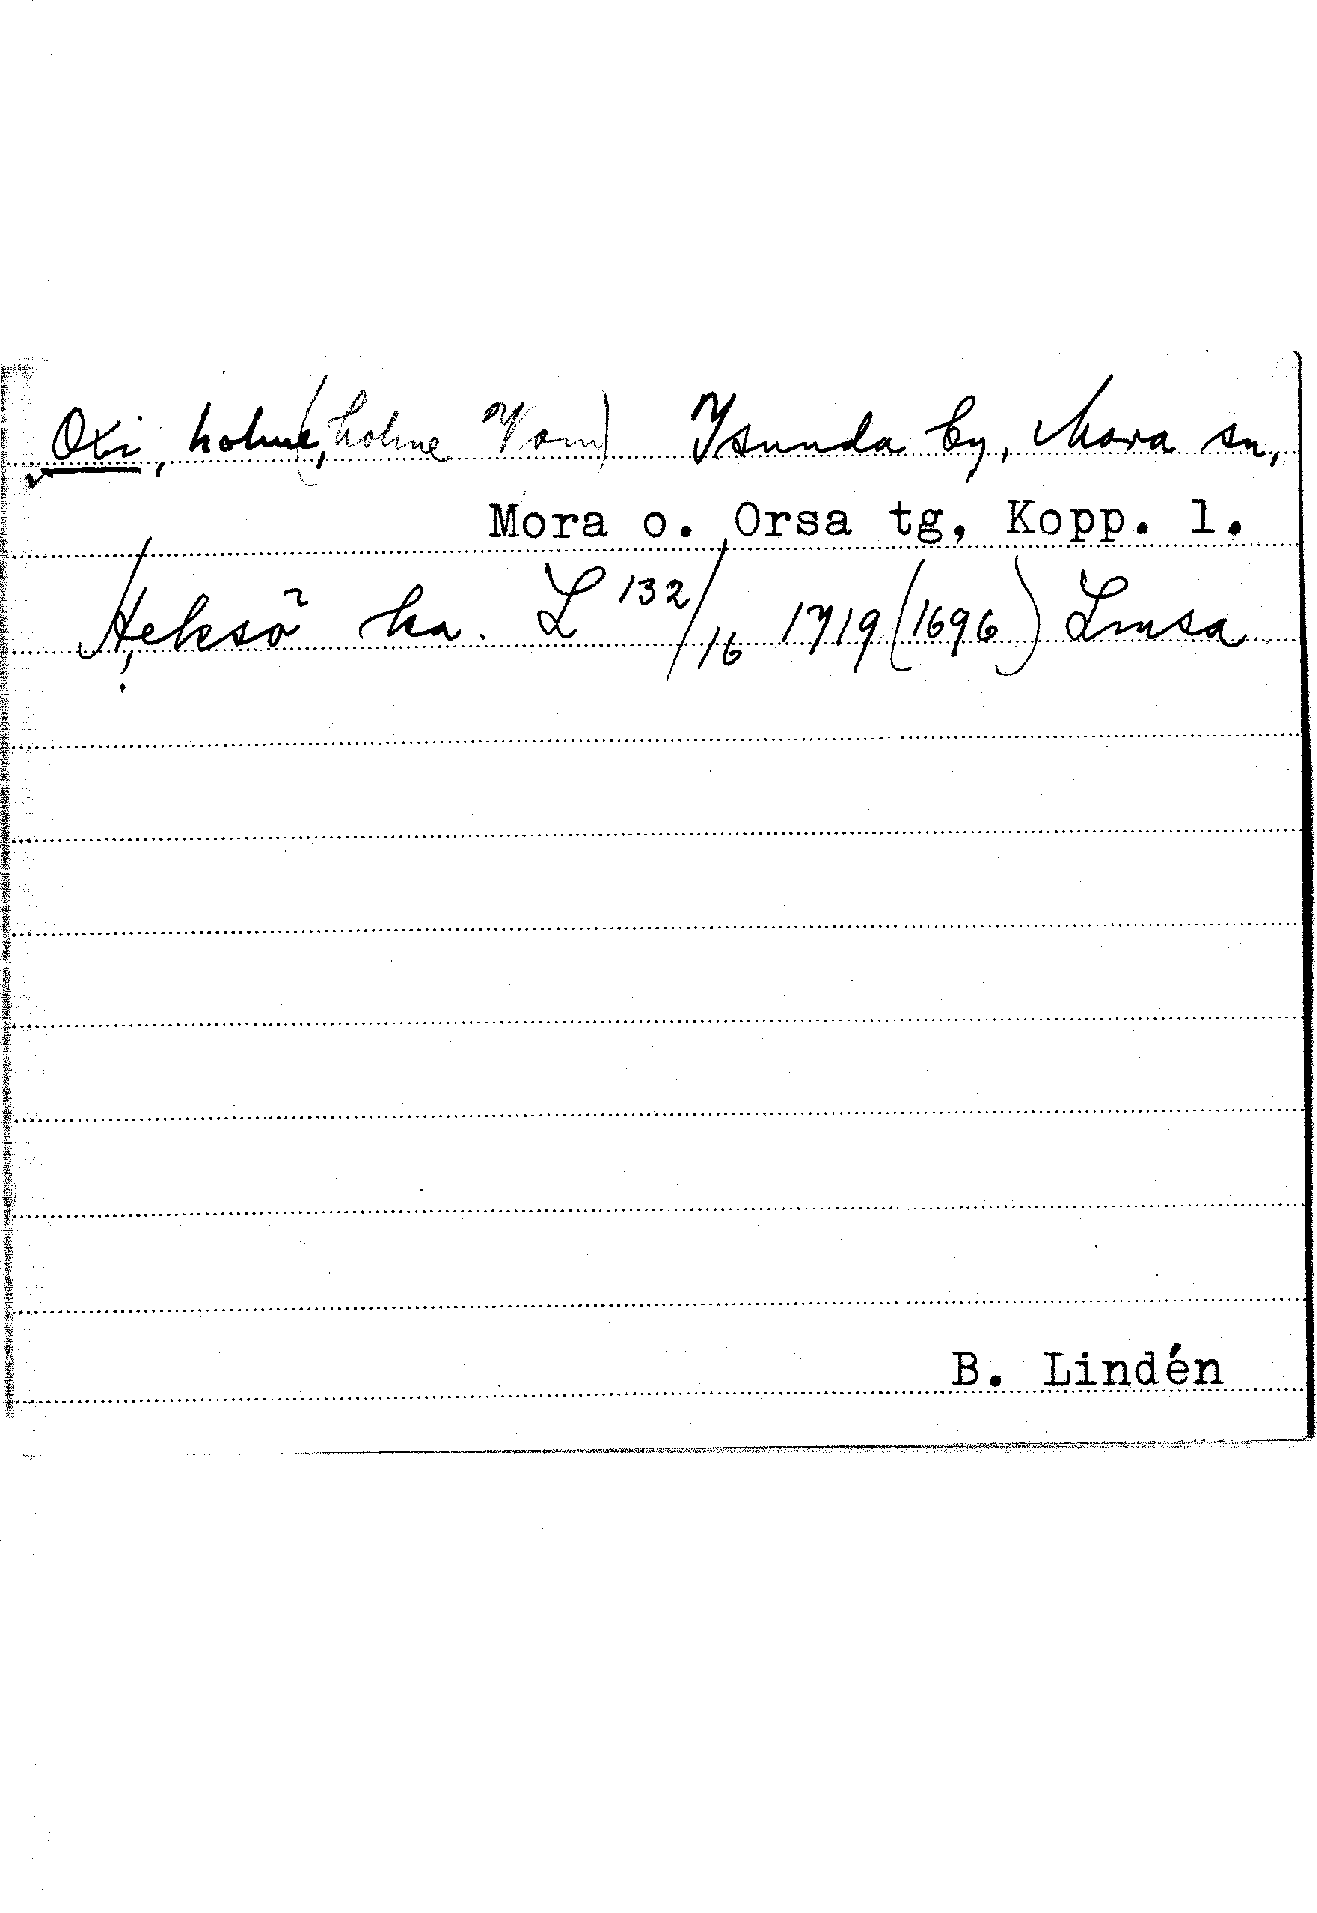 Oxi, holme, (holme Vom) Ysunda by, Mora sn,
Mora o. Orsa tg, Kopp. l.
Heksö ka. L 132/16 1719 (1696) Lmsa
B. Lindén